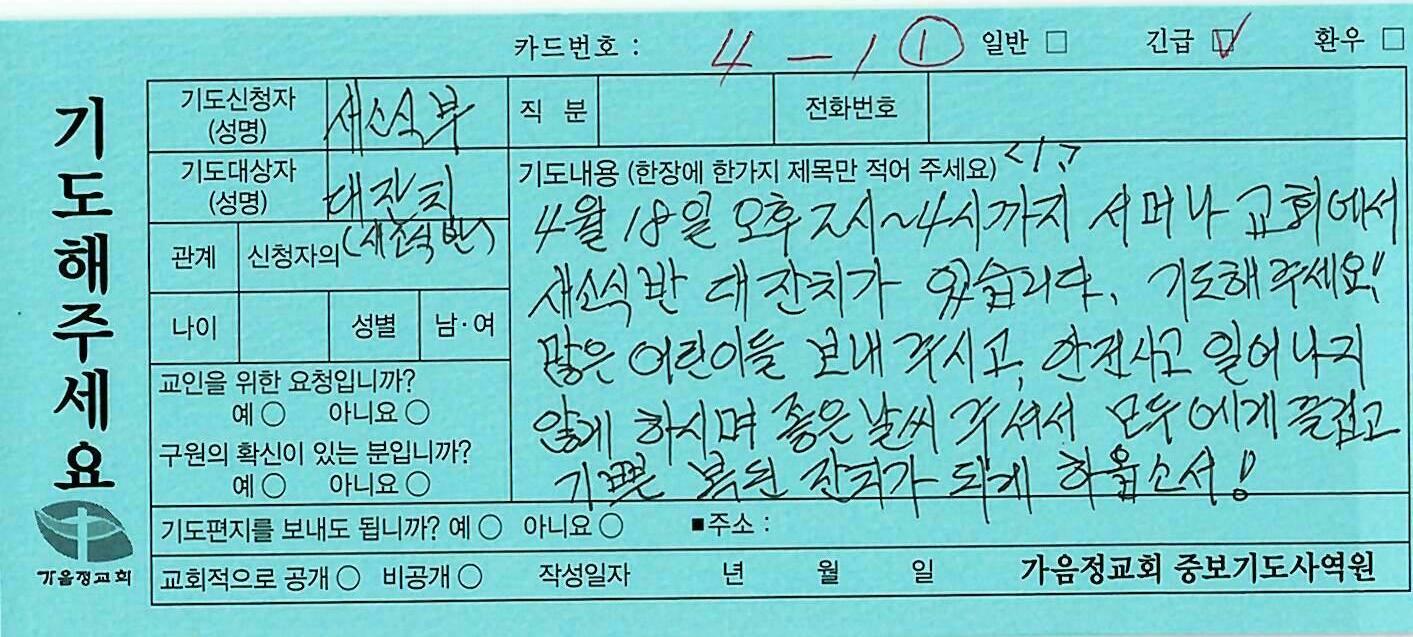 카드번호 : 4 - 1 ① 일반 □ 긴급 ☑ 환우 □
기도해주세요
가음정교회
기도신청자 (성명) 새소식부 직 분 전화번호
기도대상자 (성명) 대잔치 (새소식반)
관계 신청자의
나이 성별 남·여
교인을 위한 요청입니까?
예 ○ 아니요 ○
구원의 확신이 있는 분입니까?
예 ○ 아니요 ○
기도내용 (한장에 한가지 제목만 적어 주세요) <1>
4월 18일 오후 2시~4시까지 서머나 교회에서
새소식반 대잔치가 있습니다. 기도해주세요!!
많은 어린이들 보내 주시고, 안전사고 일어나지
않게 하시며 좋은 날씨 주셔서 모두에게 즐겁고
기쁜 복된 잔치가 되게 하옵소서!
기도편지를 보내도 됩니까? 예 ○ 아니요 ○ ■주소 :
교회적으로 공개 ○ 비공개 ○ 작성일자 년 월 일 가음정교회 중보기도사역원